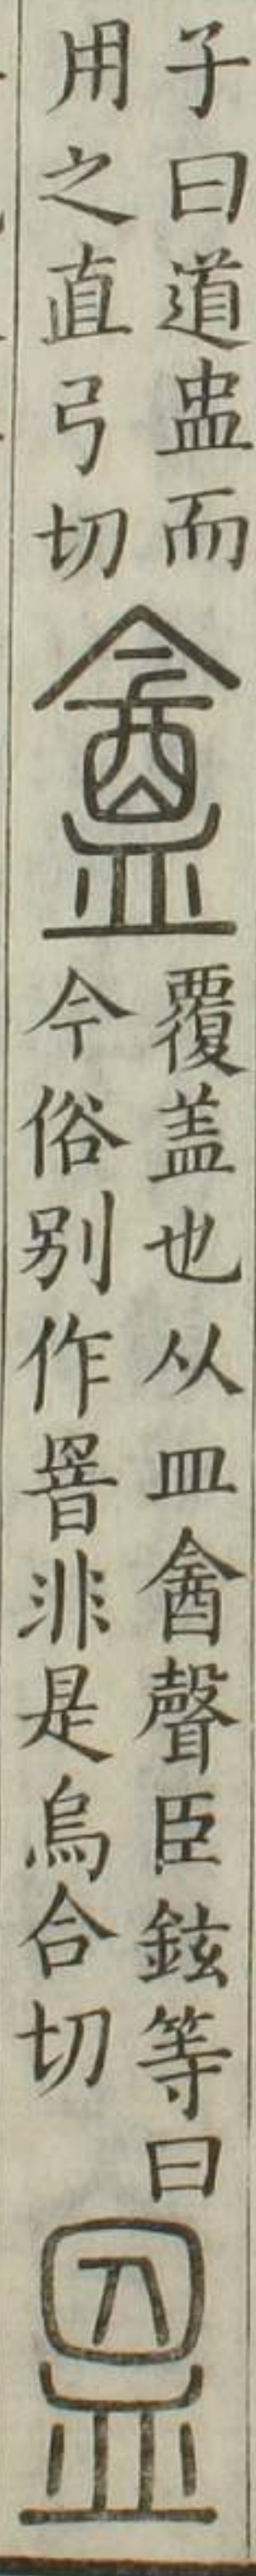 子曰道盅而
用之直弓切
盦
覆盖也从皿酓聲臣鉉等曰
今俗别作罯非是烏合切
𥁕